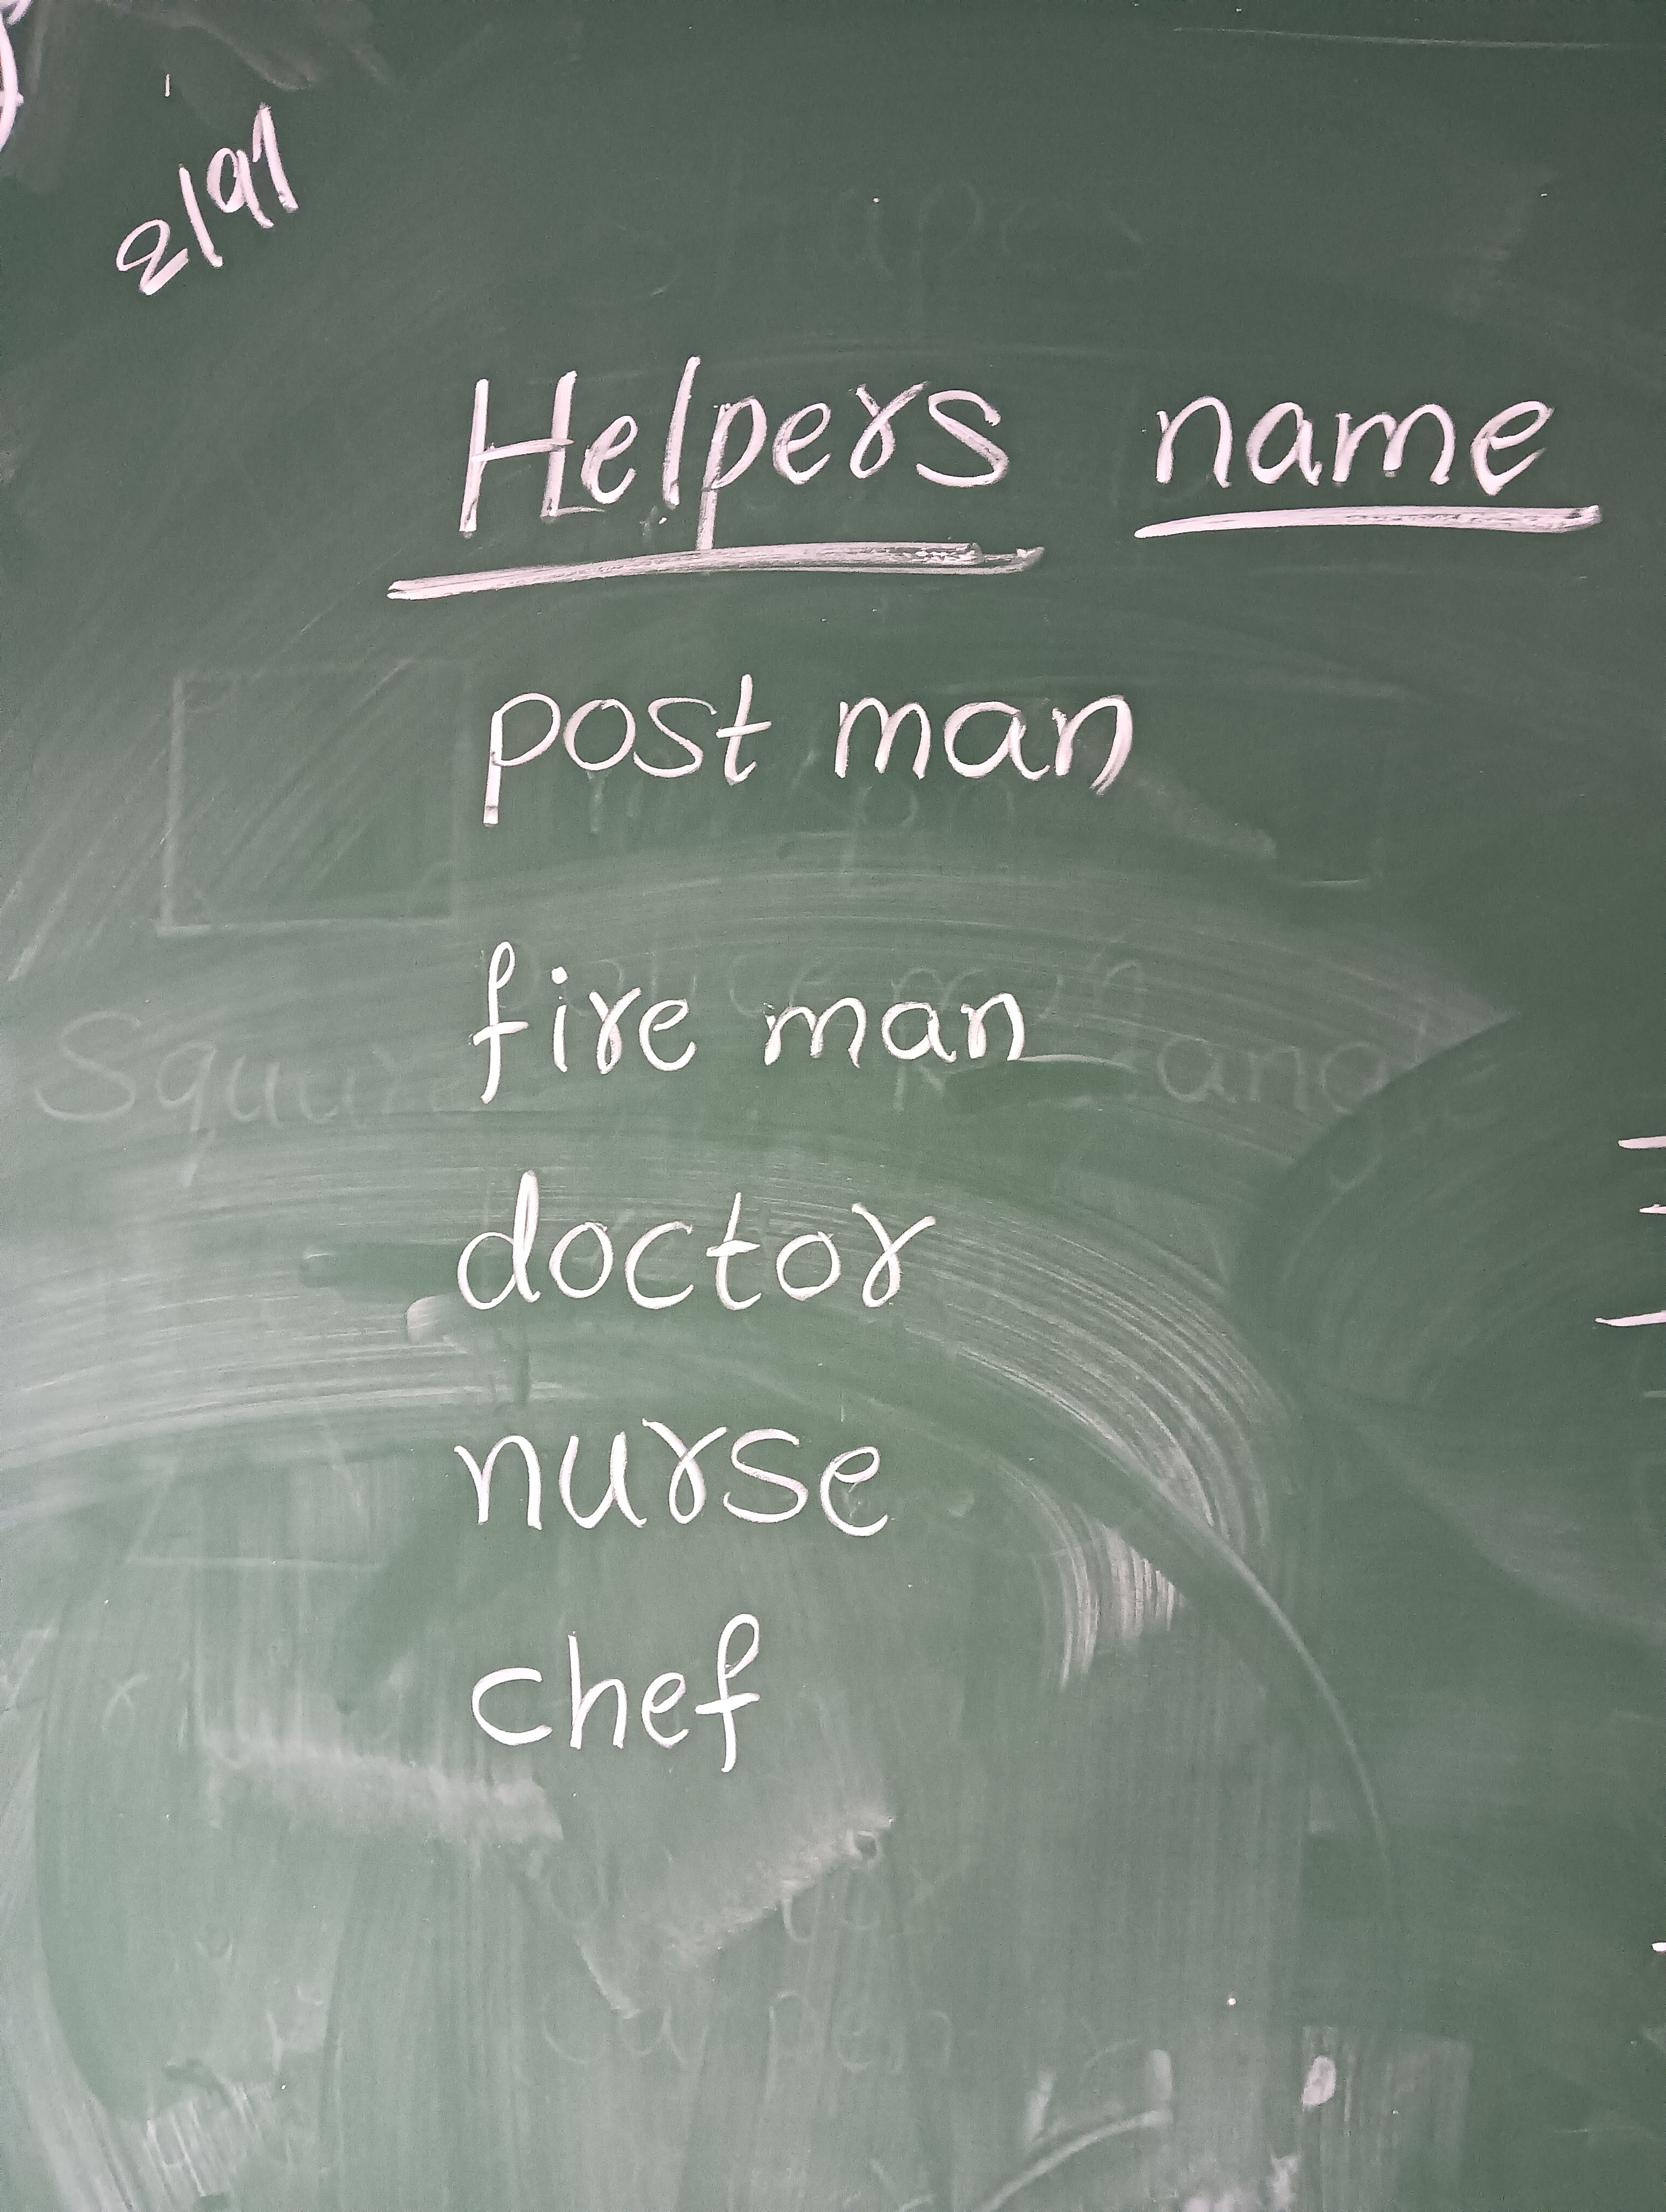 Helpers name
post man
fire man
doctor
nurse
chef